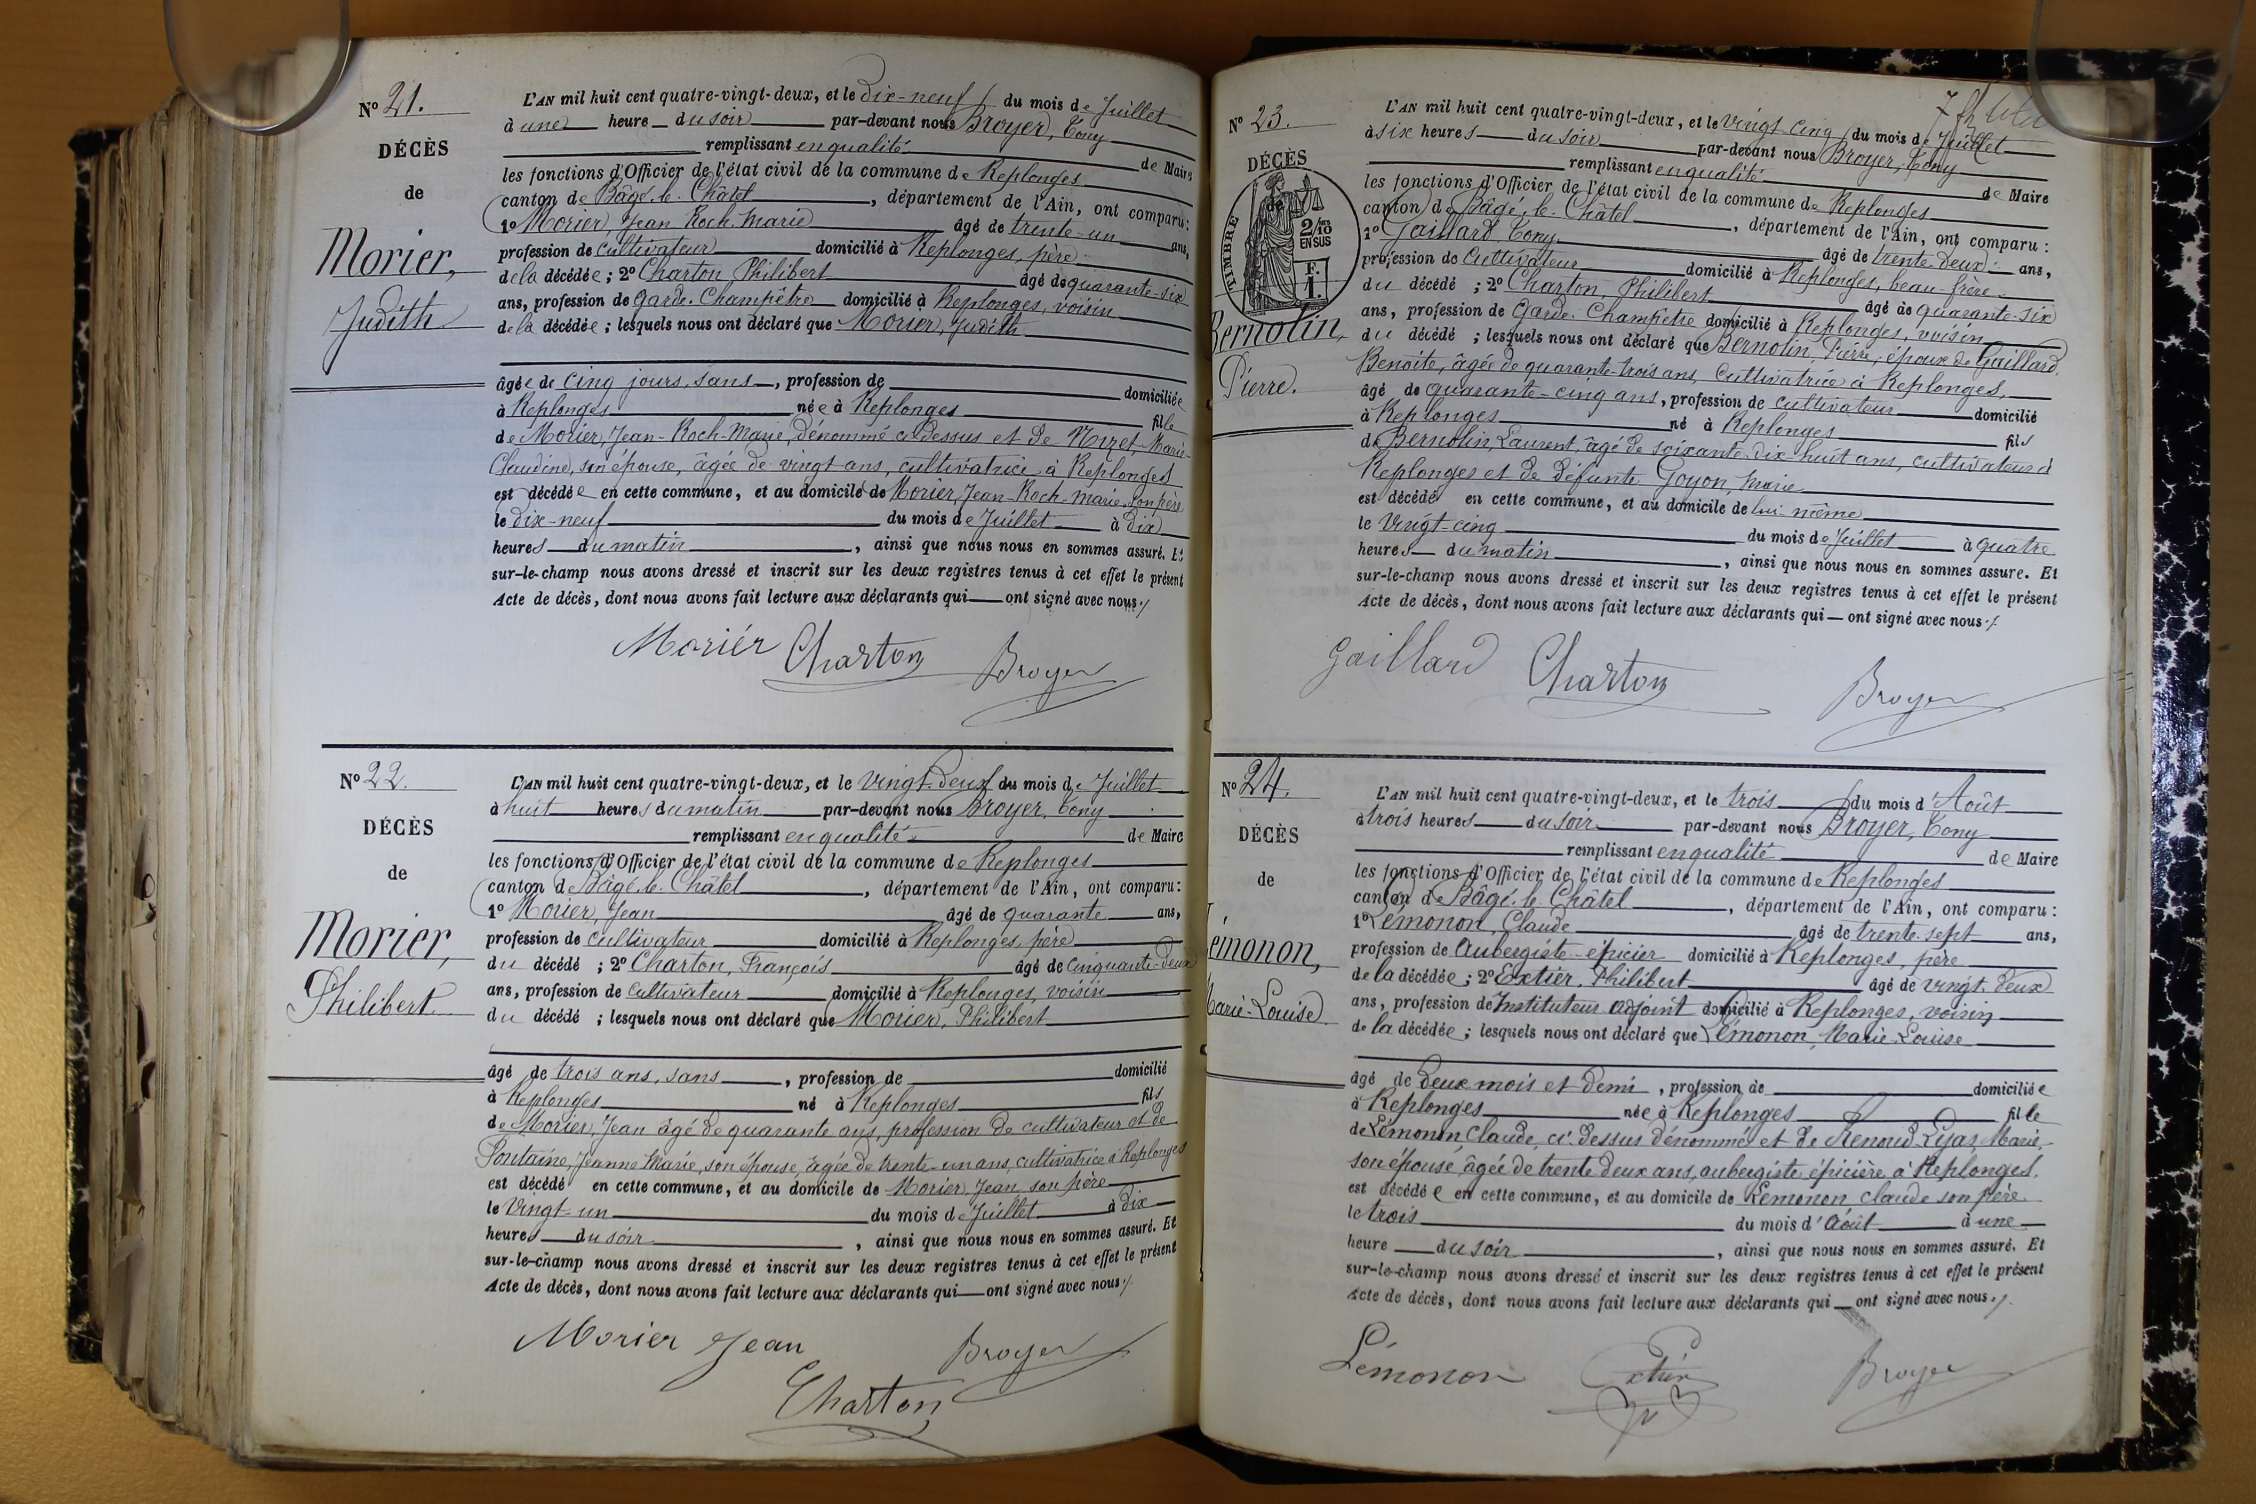 Nº 21.
DÉCÈS
de
Morier,
Judith
L'AN mil huit cent quatre-vingt-deux, et le dix-neuf du mois de Juillet
à une heure du soir par-devant nous Broyer, Tony
remplissant en qualité de Maire
les fonctions d'Officier de l'état civil de la commune de Replonges
canton de Bâgé-le-Châtel, département de l'Ain, ont comparu :
1º Morier, Jean Roch Marie âgé de trente-un ans,
profession de cultivateur domicilié à Replonges, père
de la décédée ; 2º Charton Philibert âgé de quarante-six
ans, profession de Garde-Champêtre domicilié à Replonges, voisin
de la décédée ; lesquels nous ont déclaré que Morier, Judith
âgée de cinq jours, sans, profession de domiciliée
à Replonges née à Replonges fille
de Morier, Jean-Roch-Marie, dénommé ci-dessus et de Nizet, Marie-
Claudine, son épouse, âgée de vingt ans, cultivatrice à Replonges
est décédée en cette commune, et au domicile de Morier, Jean-Roch-Marie, son père
le dix-neuf du mois de Juillet à dix
heures du matin, ainsi que nous nous en sommes assuré. Et
sur-le-champ nous avons dressé et inscrit sur les deux registres tenus à cet effet le présent
Acte de décès, dont nous avons fait lecture aux déclarants qui ont signé avec nous ./
Moriér Charton Broyer
Nº 22.
DÉCÈS
de
Morier,
Philibert
L'AN mil huit cent quatre-vingt-deux, et le vingt-deux du mois de Juillet
à huit heures du matin par-devant nous Broyer, Tony
remplissant en qualité de Maire
les fonctions d'Officier de l'état civil de la commune de Replonges
canton de Bâgé-le-Châtel, département de l'Ain, ont comparu :
1º Morier, Jean âgé de quarante ans,
profession de cultivateur domicilié à Replonges, père
du décédé ; 2º Charton, François âgé de cinquante-deux
ans, profession de cultivateur domicilié à Replonges, voisin
du décédé ; lesquels nous ont déclaré que Morier, Philibert
âgé de trois ans, sans, profession de domicilié
à Replonges né à Replonges fils
de Morier, Jean âgé de quarante ans, profession de cultivateur et de
Fontaine, Jeanne Marie, son épouse, âgée de trente-un ans, cultivatrice à Replonges
est décédé en cette commune, et au domicile de Morier, Jean, son père
le vingt-un du mois de Juillet à dix
heures du soir, ainsi que nous nous en sommes assuré. Et
sur-le-champ nous avons dressé et inscrit sur les deux registres tenus à cet effet le présent
Acte de décès, dont nous avons fait lecture aux déclarants qui ont signé avec nous ./
Morier Jean Broyer
Charton
Nº 23.
DÉCÈS
de
TIMBRE
2/10
EN SUS
F.
1.
Bernolin,
Pierre.
L'AN mil huit cent quatre-vingt-deux, et le vingt-cinq du mois de Juillet
à six heures du soir par-devant nous Broyer, Tony
remplissant en qualité de Maire
les fonctions d'Officier de l'état civil de la commune de Replonges
canton de Bâgé-le-Châtel, département de l'Ain, ont comparu :
1º Gaillard Tony âgé de trente-deux ans,
profession de cultivateur domicilié à Replonges, beau-frère
du décédé ; 2º Charton Philibert âgé de quarante-six
ans, profession de Garde-Champêtre domicilié à Replonges, voisin
du décédé ; lesquels nous ont déclaré que Bernolin, Pierre, époux de Gaillard
Benoîte, âgée de quarante-trois ans, cultivatrice à Replonges,
âgé de quarante-cinq ans, profession de cultivateur domicilié
à Replonges né à Replonges fils
de Bernolin, Laurent, âgé de soixante-dix-huit ans, cultivateur à
Replonges et de défunte Goyon, Marie
est décédé en cette commune, et au domicile de lui-même
le vingt-cinq du mois de Juillet à quatre
heures du matin, ainsi que nous nous en sommes assuré. Et
sur-le-champ nous avons dressé et inscrit sur les deux registres tenus à cet effet le présent
Acte de décès, dont nous avons fait lecture aux déclarants qui ont signé avec nous ./
Gaillard Charton Broyer
Nº 24.
DÉCÈS
de
émonon,
Marie-Louise
L'AN mil huit cent quatre-vingt-deux, et le trois du mois d'Août
à trois heures du soir par-devant nous Broyer, Tony
remplissant en qualité de Maire
les fonctions d'Officier de l'état civil de la commune de Replonges
canton de Bâgé-le-Châtel, département de l'Ain, ont comparu :
1º Lémonon, Claude âgé de trente-sept ans,
profession de Aubergiste-épicier domicilié à Replonges, père
de la décédée ; 2º Extier, Philibert âgé de vingt-deux
ans, profession de Instituteur adjoint domicilié à Replonges, voisin
de la décédée ; lesquels nous ont déclaré que Lémonon, Marie-Louise
âgé de deux mois et demi, profession de domiciliée
à Replonges née à Replonges fille
de Lémonon Claude, ci-dessus dénommé et de Renoud-Lyas, Marie
son épouse, âgée de trente-deux ans, aubergiste épicière à Replonges.
est décédée en cette commune, et au domicile de Lémonon Claude son père
le trois du mois d'Août à une
heure du soir, ainsi que nous nous en sommes assuré. Et
sur-le-champ nous avons dressé et inscrit sur les deux registres tenus à cet effet le présent
Acte de décès, dont nous avons fait lecture aux déclarants qui ont signé avec nous ./
Lémonon Extier Broyer